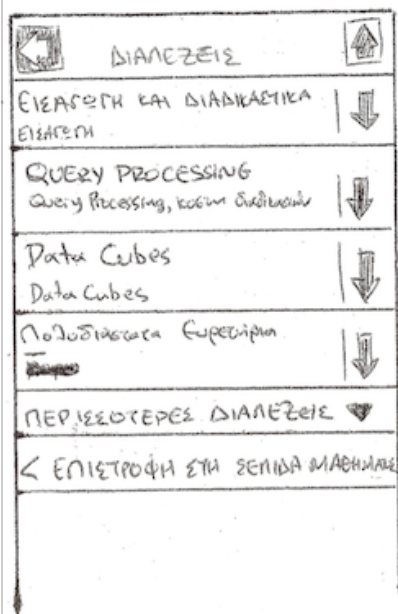 ΔΙΑΛΕΞΕΙΣ
ΕΙΣΑΓΩΓΗ ΚΑΙ ΔΙΑΔΙΚΑΣΤΙΚΑ
ΕΙΣΑΓΩΓΗ
QUERY PROCESSING
Query Processing,
Data Cubes
Data Cubes
Πολυδιάστατα Ευρετήρια
ΠΕΡΙΣΣΟΤΕΡΕΣ ΔΙΑΛΕΞΕΙΣ
< ΕΠΙΣΤΡΟΦΗ ΣΤΗ ΣΕΛΙΔΑ ΜΑΘΗΜΑΤΟΣ